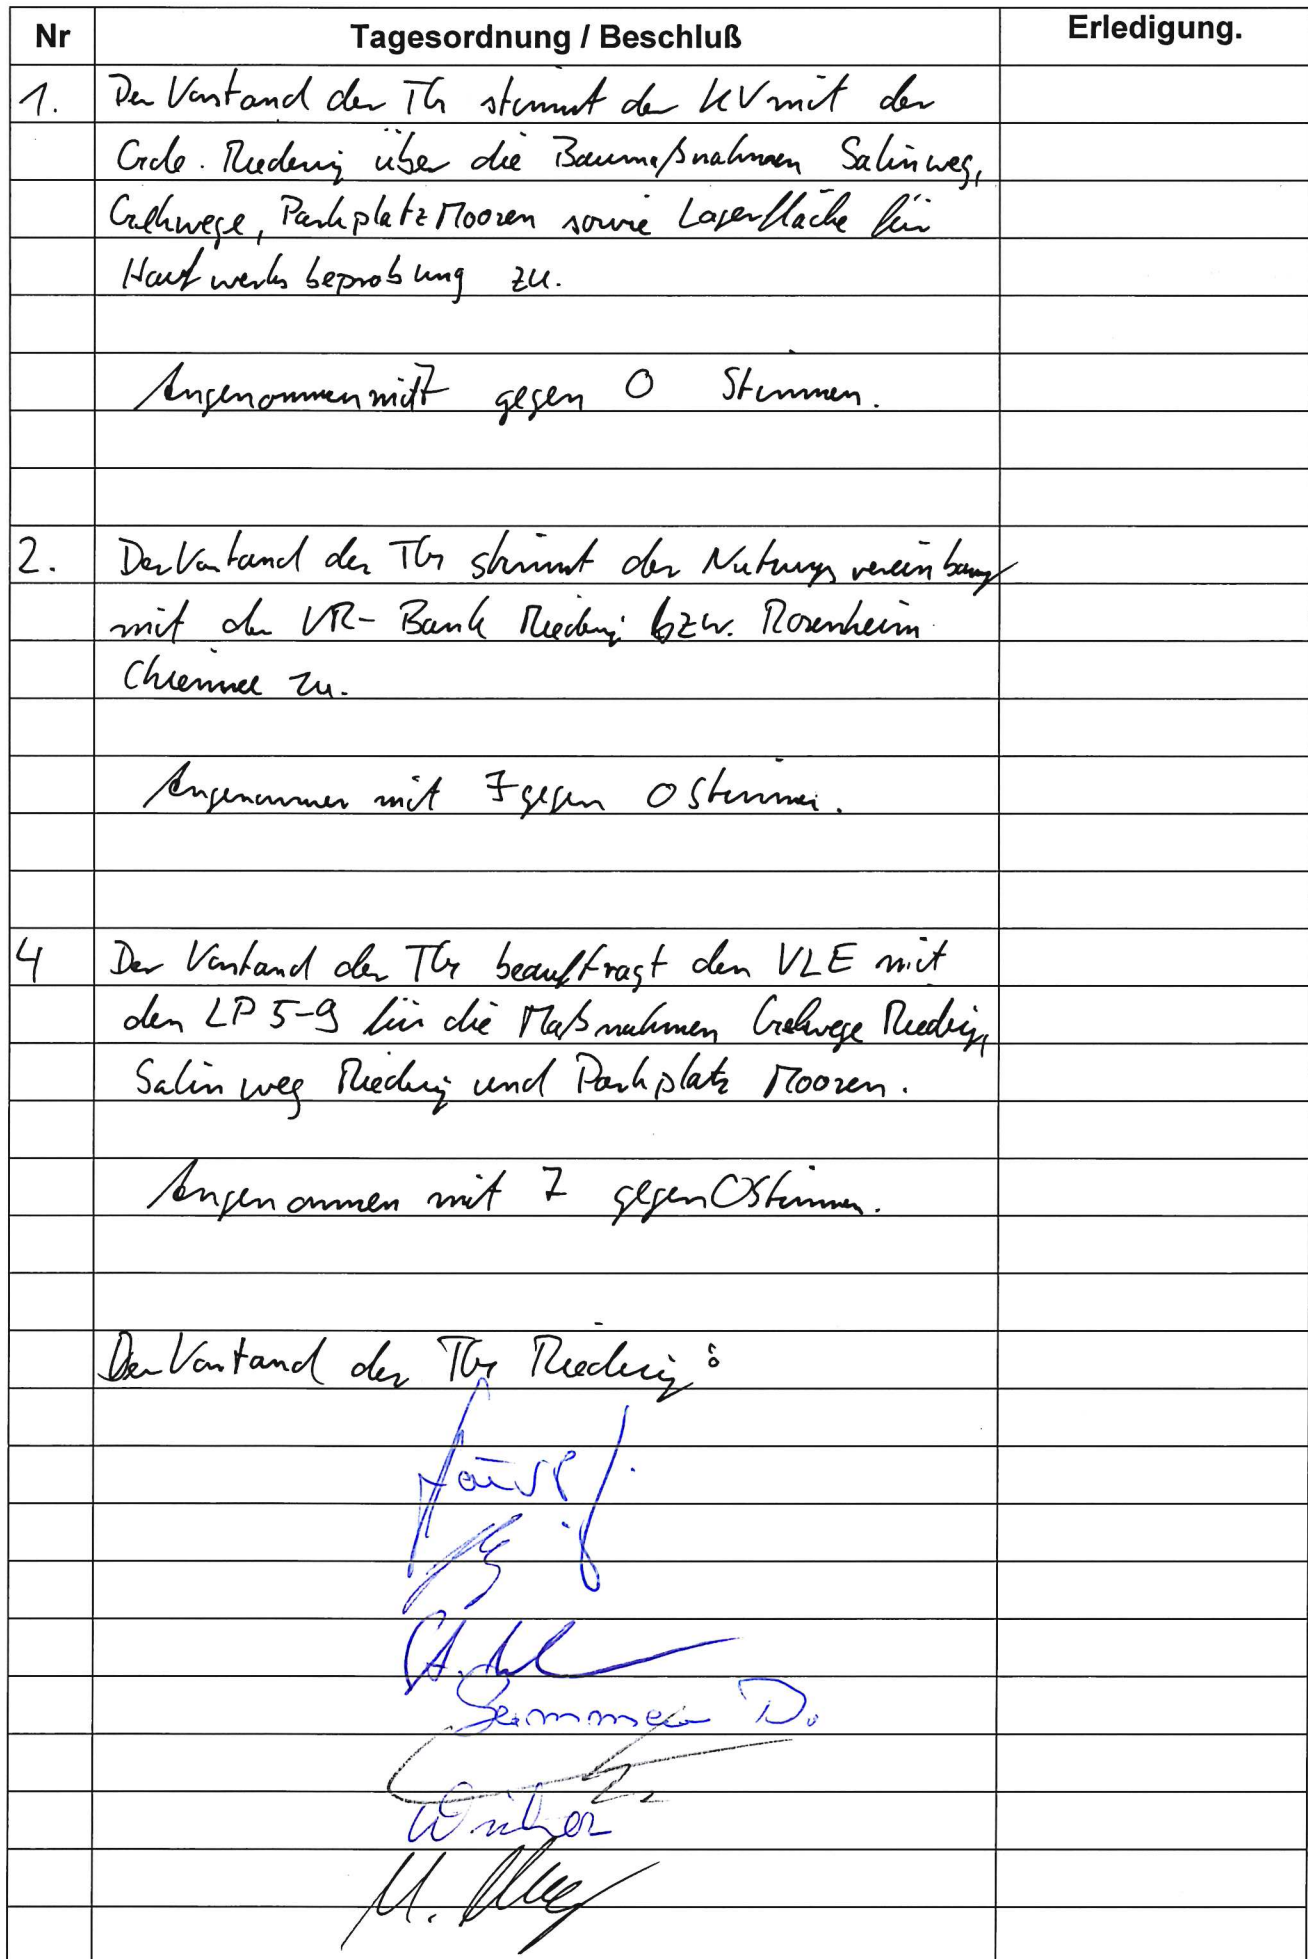 Nr Tagesordnung / Beschluß Erledigung.
1. Der Vorstand der TG stimmt der KV mit der
Gde. Riedering über die Baumaßnahmen Salinweg,
Gehwege, Parkplatz Moosen sowie Lagerfläche für
Haufwerksbeprobung zu.
Angenommen mit 7 gegen 0 Stimmen.
2. Der Vorstand der TG stimmt der Nutzungsvereinbarung
mit der VR-Bank Riedering bzw. Rosenheim
Chiemsee zu.
Angenommen mit 7 gegen 0 Stimmen.
4 Der Vorstand der TG beauftragt den VLE mit
den LP 5-9 für die Maßnahmen Gehwege Riedering,
Salinweg Riedering und Parkplatz Moosen.
Angenommen mit 7 gegen 0 Stimmen.
Der Vorstand der TG Riedering:
D.
M.